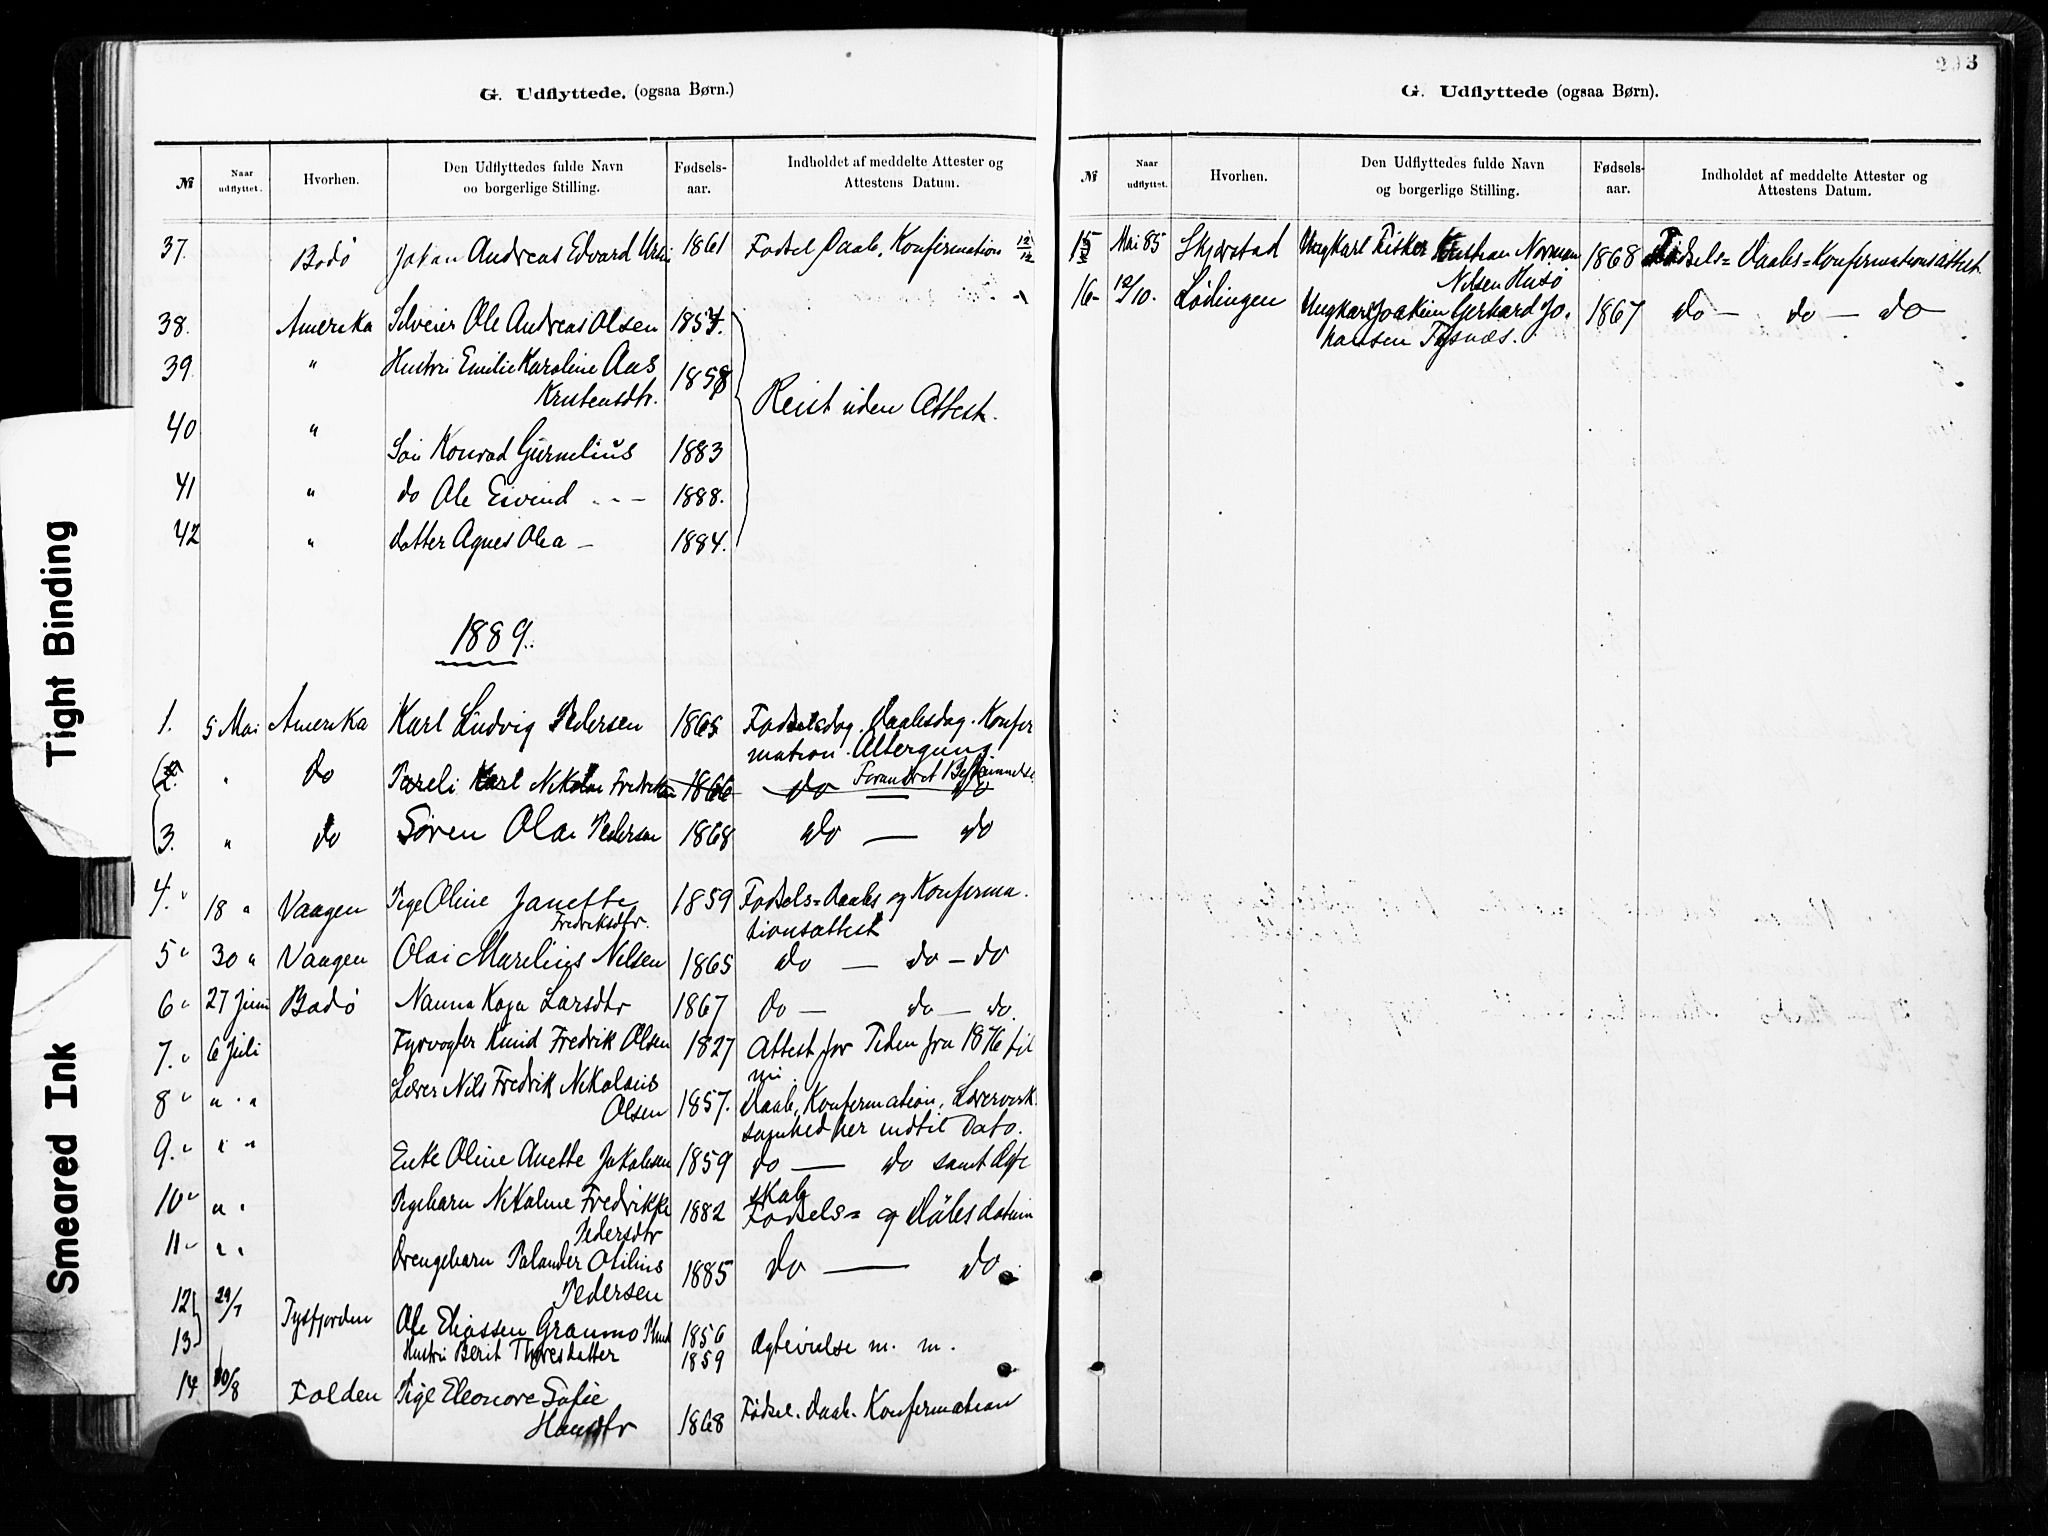 G. Udflyttede. (ogsaa Børn.)
№ Naar udflyttet. Hvorhen. Den Udflyttedes fulde Navn oo borgerlige Stilling. Fødsels-aar. Indholdet af meddelte Attester og Attestens Datum.
37. Bodø Johan Andreas Edvard 1861 Fødsel Daab, Konfirmation 12/12
38. Amerika Selveier Ole Andreas Olsen 1854.
39. " Hustru Emilie Karoline Aas 1858
Kristensdtr. Reist uden Attest.
40 "
Søn Konrad 1883
41 " do Ole Eivind - - - 1888.
42 " datter Agnes Olea - 1884.
1889.
1. 5 Mai Amerika Karl Ludvig Pedersen 1865 Fødselsdag. Daabsdag. Konfir
mation. Altergang
2. " do Pareli Karl Nikolai Fredriksen 1866 do — do
Forandret Bestemmelse
3. " do Søren Olai Pedersen 1868 do — do
4. " 18 " Vaagen Pige Oline Janette 1859 Fødsels= Daabs og Konfirma.
Fredriksdtr. tionsattest
5 " 30 " Vaagen Olai Marelius Nilsen 1865 do — do — do
6 " 27 Juni Bodø Nanna Kaja Larsdtr 1867 do — do — do.
7. " 6 Juli Fyrvogter Knud Fredrik Olsen 1827 Attest for Tiden fra 1876 til
nu.
8 " " " Lærer Nils Fredrik Nikolaus
Olsen 1857. Daab, Konfirmation, Lærervirk
somhed her indtil Dato.
9. " " " Enke Oline Anette Jakobsen 1859 do — do samt Ægte
skab
10 " " " Pigebarn Nikoline Fredrikke 1882 Fødsels= og Daabsdatum
Pedersdtr
11 " " " Drengebarn Palander Otilius
Pedersen 1885 do — do.
12 29/7 Tysfjorden Ole Eliassen Graumo 1856
13 Hustru Berit Thoresdatter 1859 Ægtevielse m. m.
14 30/8 Folden Pige Eleonore Sofie
Hansdtr 1868 Fødsel. Daab. Konfirmation
293
G. Udflyttede (ogsaa Børn).
№ Naar udflyttet. Hvorhen. Den Udflyttedes fulde Navn og borgerlige Stilling. Fødsels-aar. Indholdet af meddelte Attester og Attestens Datum.
15 Mai 85 Skjerstad Ungkarl Fisker Kristian Norman 1868 Fødsels= Daabs= Konfirmationsattest
Nilsen Husø
16 - 12/10. Lødingen Ungkarl Joakim Gerhard Jo- 1867 do — do — do
hansen Tysnæs.
Tight Binding
Smeared Ink